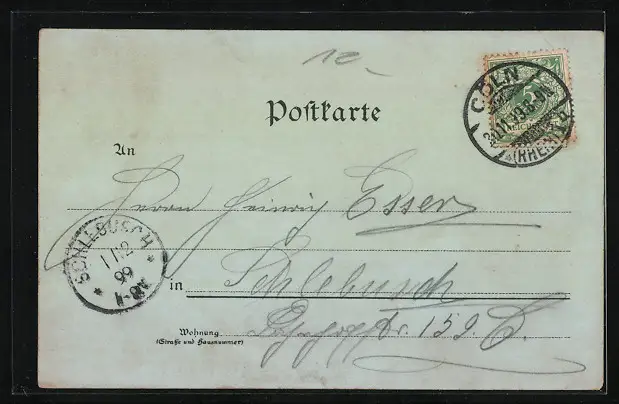 12
Postkarte
CÖLN
(RHEIN)
An
Herrn Heinrich Esser
SCHLEBUSCH
11 2
99
in Schlebusch
Wohnung
(Straße und Hausnummer)
152. C.